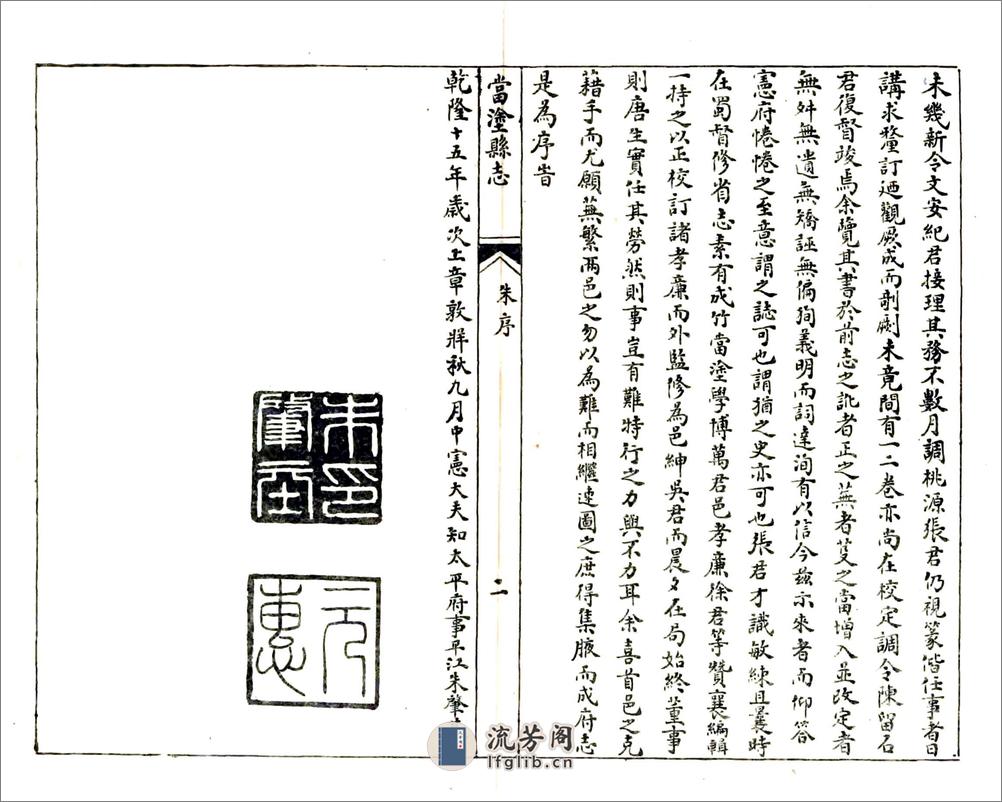 未幾新令文安紀君接理其務不數月調桃源張君仍視篆偕任事者日
講求釐訂廼觀厥成而剞劂未竟間有一二卷亦尚在校定調令陳留石
君復督竣焉余覽其書於前志之訛者正之蕪者芟之當增入並改定者
無舛無遺無矯誣無偏徇義明而詞達洵有以信今茲示來者而仰答
憲府惓惓之至意謂之誌可也謂猶之史亦可也張君才識敏練且曩時
在蜀督修省志素有成竹當塗學博萬君邑孝廉徐君等贊襄編輯
一持之以正校訂諸孝廉而外監修為邑紳吳君而晨夕在局始終董事
則唐生實任其勞然則事豈有難特行之力與不力耳余喜首邑之克
藉手而尤願蕪繁兩邑之勿以為難而相繼速圖之庶得集腋而成府志
是為序旹
當塗縣志
朱序
二
乾隆十五年歲次上章敦牂秋九月中憲大夫知太平府事平江朱肇
朱肇
印
元惠
流芳阁
lfglib.cn